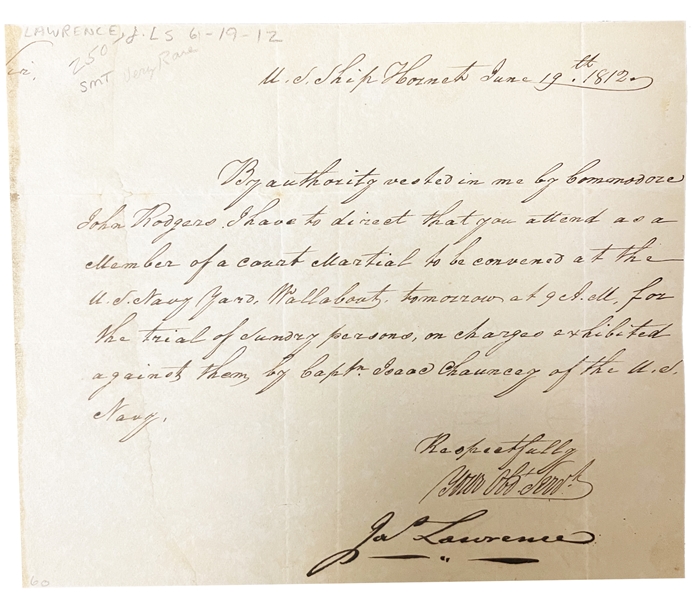 LAWRENCE, J. LS 6-19-12
250
SMT Very Rare
Sir,
U.S. Ship Hornet June 19th. 1812.
By authority vested in me by Commodore
John Rodgers I have to direct that you attend as a
Member of a court Martial to be convened at the
U.S. Navy Yard, Wallabout, tomorrow at 9 A.M, for
the trial of sundry persons, on charges exhibited
against them, by Captn. Isaac Chauncey of the U.S.
Navy.
Respectfully
Your Obt Servt
Jas Lawrence
60